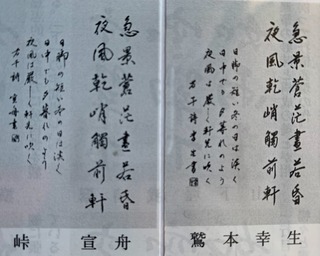 急景蒼茫晝若昏
夜風乾峭觸前軒
日脚の短い冬の日は淡く
日中でも夕暮れのよう
夜風は厳しく軒先に吹く
鷲本幸生
急景蒼茫晝若昏
夜風乾峭觸前軒
日脚の短い冬の日は淡く
日中でも夕暮れのよう
夜風は厳しく軒先に吹く
峠宣舟